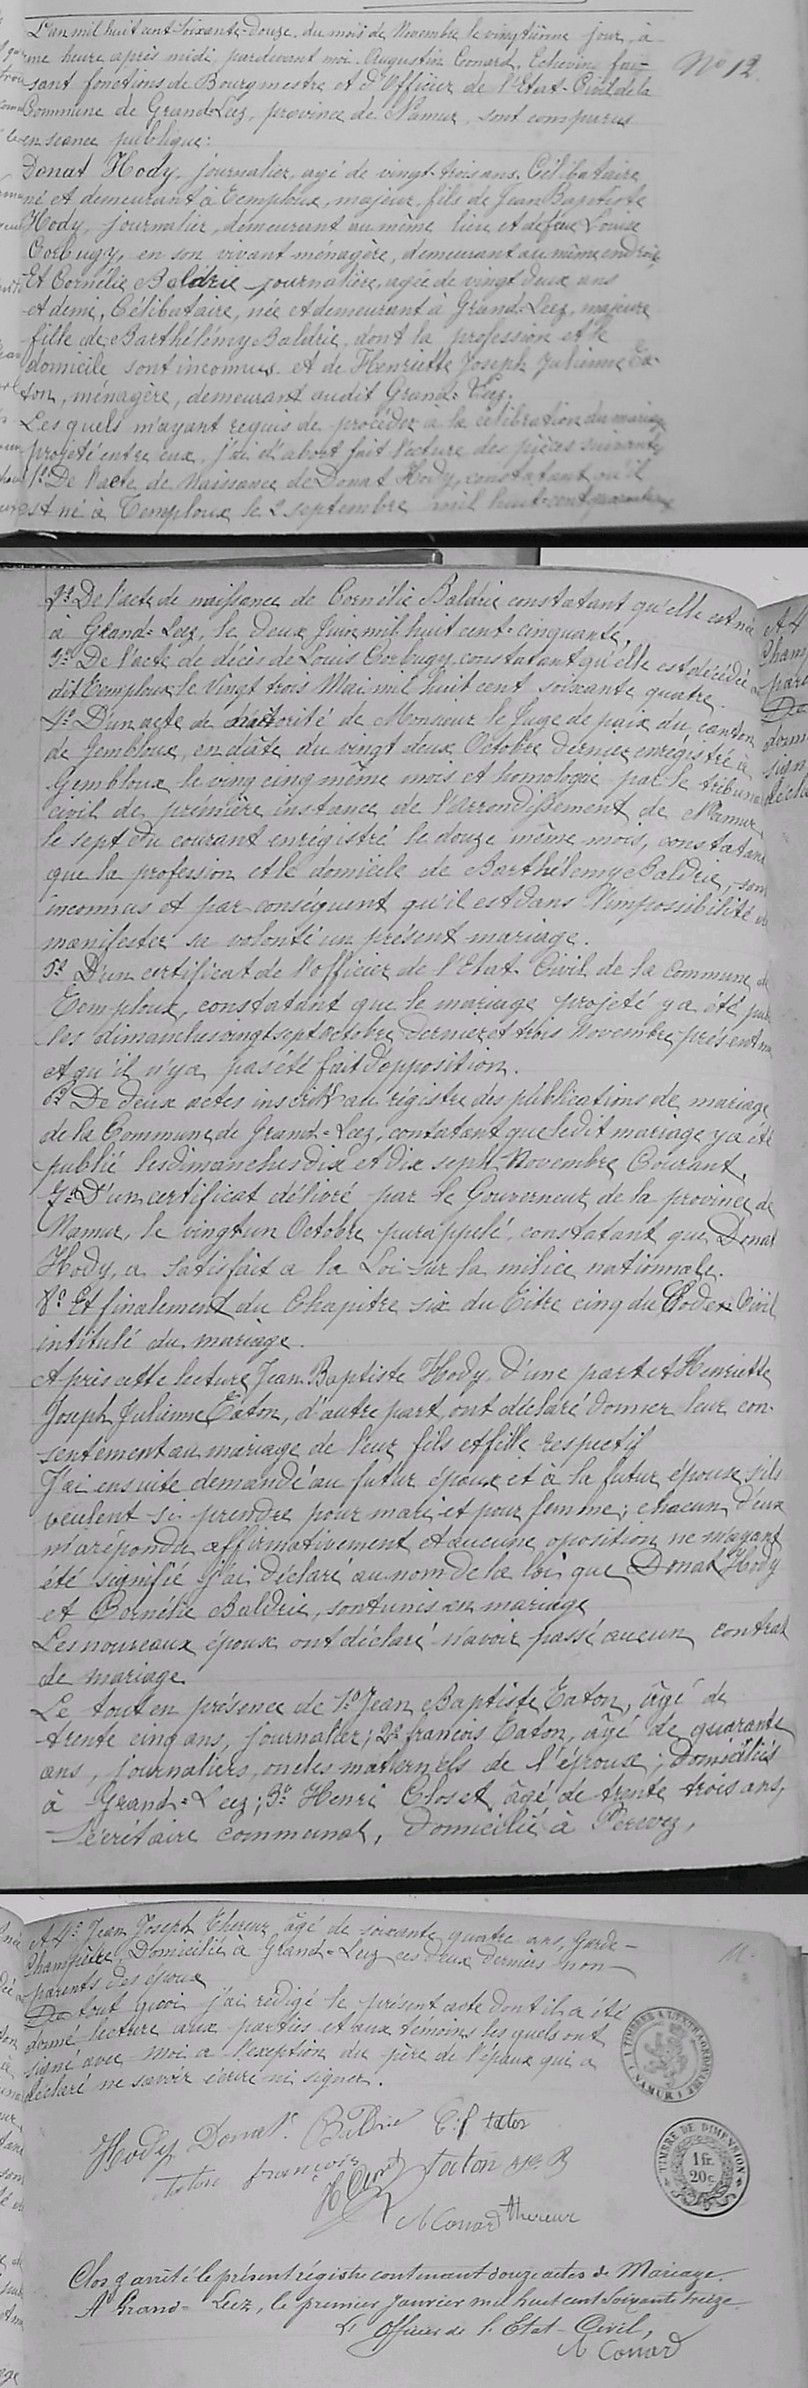 L'an mil huit cent soixante-douze, du mois de Novembre le vingtième jour, à
une heure après midi, pardevant moi Augustin Conard, Echevin fai-
sant fonctions de Bourgmestre et d'Officier de l'Etat-Civil de la
Commune de Grand-Leez, province de Namur, sont comparus
en seance publique:
N° 12.
Donat Hody, journalier, agé de vingt-trois ans, Célibataire
né et demeurant à Temploux, majeur, fils de Jean Baptiste
Hody, journalier, demeurant au même lieu et de feue Louise
Corbugy, en son vivant ménagère, demeurant au même endroit
Et Cornélie Baldrie journalière, agée de vingt deux ans
et demi, Célibataire, née et demeurant à Grand-Leez, majeure
fille de Barthélémy Baldrie, dont la profession et le
domicile sont inconnus et de Henriette Joseph Julienne Ta-
ton, ménagère, demeurant audit Grand-Leez.
Les quels m'ayant requis de procéder à la célébration du mariage
projeté entre eux, j'ai d'abort fait lecture des pièces suivantes
1° De l'acte de Naissance de Donat Hody, constatant qu'il
est né à Temploux le 2 septembre mil huit-cent quarante
2° De l'acte de naissance de Cornélie Baldrie constatant qu'elle est née
à Grand-Leez, le deux Juin mil huit cent-cinquante.
3° De l'acte de décès de Louis Corbugy constatant qu'elle est décédée
dit Temploux le Vingt trois Mai mil huit cent soixante quatre.
4° D'un acte de notorité de Monsieur le Juge de paix du canton
de Jembloux, en date du vingt deux Octobre dernier enregistré à
Gembloux le ving cinq même mois et homologué par le tribunal
civil de première instance de l'arrondissement de Namur
le sept du courant enrégistré le douze même mois, constatant
que la profession et le domicile de Barthélemy Baldrie, sont
inconnus et par conséquent qu'il est dans l'impossibilité de
manifester sa volonté un présent mariage.
5° D'un certificat de l'officier de l'Etat-Civil de la Commune de
Temploux, constatant que le mariage projeté y a été pub
les dimanches vingt sept octobre dernier et trois Novembre présent
et qu'il n'y a pas été fait d'opposition.
6° De deux actes inscrits au régistre des publications de mariage
de la Commune de Grand-Leez, contatant que ledit mariage y a été
publié les dimanches dix et dix sept Novembre Courant.
7° D'un certificat délivré par le Gouverneur de la province de
Namur, le vingt un Octobre purappelé, constatant que Donat
Hody, a satisfait a la Loi sur la milice nationnale.
8° Et finalement du Chapitre six du Titre cinq du Code Civil
intitulé du mariage.
Après cette lecture Jean Baptiste Hody, d'une part et Henriette
Joseph Julienne Taton, d'autre part, ont déclaré donner leur con-
sentement au mariage de leur fils et fille respectif
J'ai ensuite demandé au futur époux et à la futur épouse s'ils
veulent se prendre pour mari et pour femme; chacun d'eux
m'a répondu affirmativement et aucune oposition ne m'ayant
été signifié j'ai déclaré au nom de la loi que Donat Hody
et Cornélie Baldrie, sont unis en mariage
Les nouveaux époux ont déclaré n'avoir passé aucun contrat
de mariage.
Le tout en présence de 1° Jean Baptiste Taton, âgé de
trente cinq ans, journalier; 2° françois Taton, âgé de quarante
ans, journaliers, oncles maternels de l'épouse; domiciliés
à Grand-Leez; 3° Henri Closet, âgé de trente trois ans,
Secrétaire communal, domicilié à Perwez,
Et 4° Jean Joseph Thereur âgé de soixante quatre ans, Garde-
Champêtre, Domicilié à Grand-Leez ces deux derniers non-
parents des époux
De tout quoi j'ai redigé le présent acte dont il a été
donné lecture aux parties et aux témoins les quels ont
signé avec moi a l'exeption du père de l'époux qui a
déclaré ne savoir écrire ni signer.
TIMBRE A L'EXTRAORDINAIRE
NAMUR
Hody Donat. Baldrie taton
taton françois taton
TIMBRE DE DIMENSION
1 fr.
20 c.
A Conard thereur
Clos & arrêté le présent régistre contenant douze actes de Mariage.
A Grand-Leez, le premier Janvier mil huit cent soixante treize
L'Officier de l'Etat-Civil,
A Conard